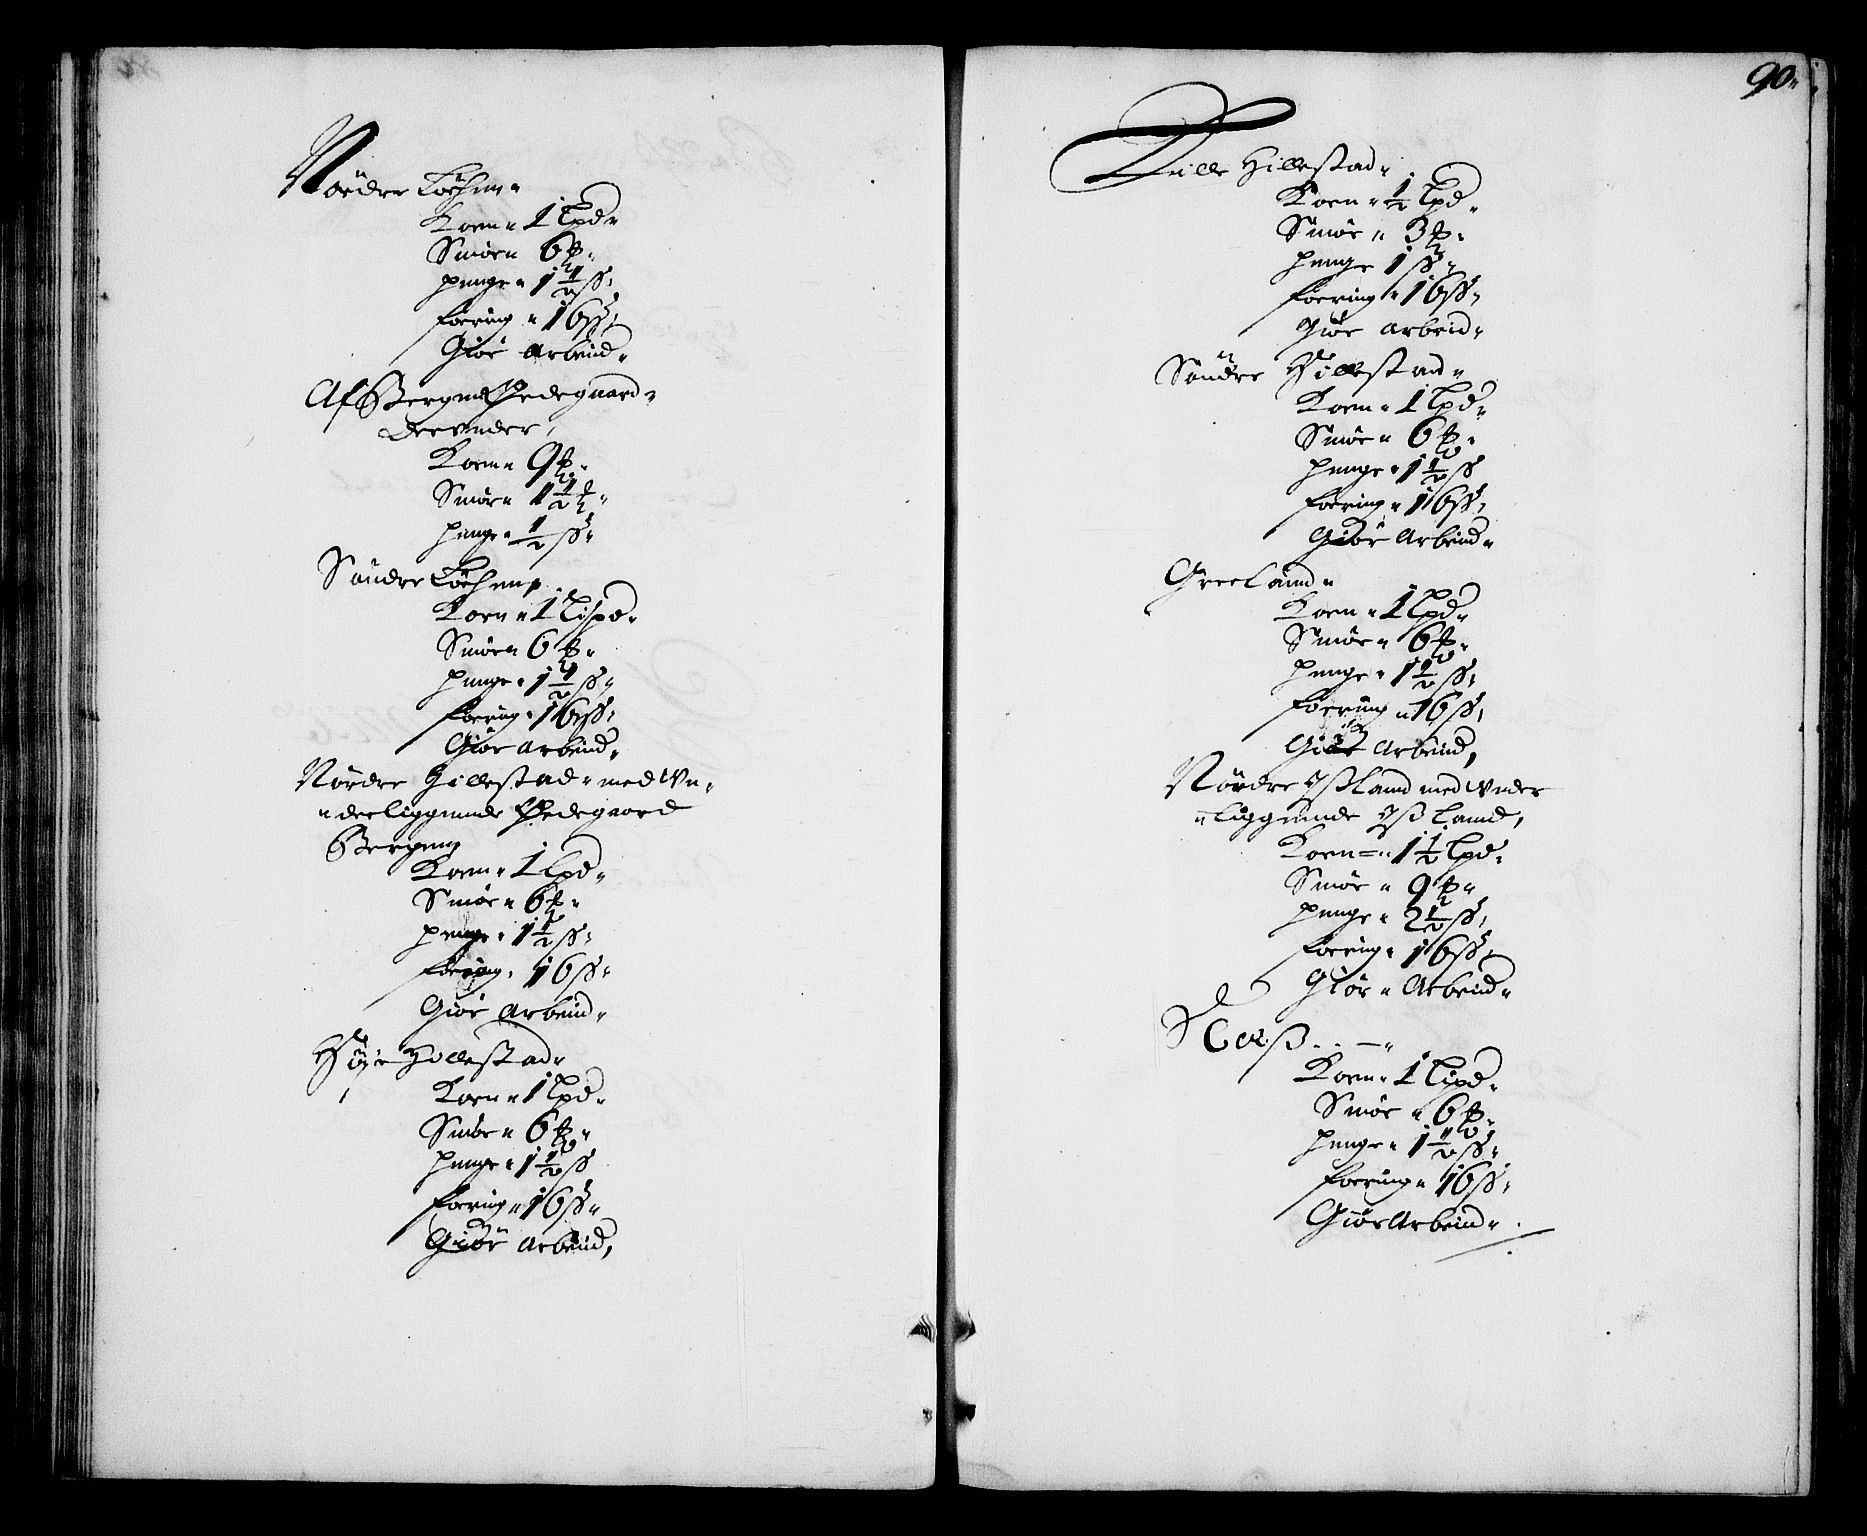 Nordre Løchenn
Korn 1 lpd
Smør 6 ℔
penge 1½ ss
foering 16 ss
Giør Arbeid
Af Bergenn Ødegaard
derunder,
Korn 9 ℔
Smør 1½ ℔
penge ½ ss
Søndre Løchenn
Korn 1 lispd
Smør 6 ℔
penge 1½ ss
foering 16 ss
Giør Arbeid,
Nordre Hillestad med Un-
derliggende Ødegaard
Bergenn
Korn 1 lpd
Smør 6 ℔
penge 1½ ss
foering 16 ss
Giør Arbeid
Høye Hollestad
Korn 1 lpd
Smør 6 ℔
penge 1½ ss
foering 16 ss
Giør Arbeid,
90.
Lille Hillestad
Korn ½ lpd
Smør 3 ℔
penge 1 ss
foering 16 ss
Giør arbeid
Søndre Hillestad
Korn 1 lpd
Smør 6 ℔
penge 1½ ss
foering 16 ss
Giør Arbeid
Greeland
Korn 1 lpd
Smør 6 ℔
penge 1½ ss
foering 16 ss
Giør Arbeid,
Nordre Ißland med under
liggende Ißland,
Korn 1½ lpd
Smør 9 ℔
penge 2½ ss
foering 16 ss
Giør Arbeid
Korn 1 lipd
Smør 6 ℔
penge 1½ ss
foering 16 ss
Giør Arbeid